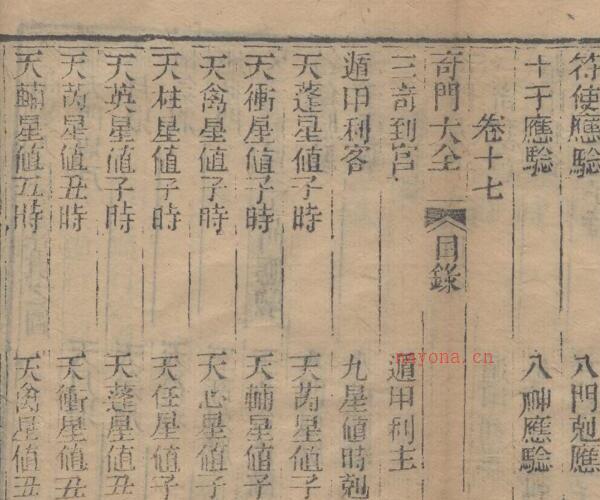 符使應驗 八門剋應
十干應驗 八神應驗
卷十七
奇門大全 目錄
三奇到宮 遁甲利主
遁甲利客 九星値時剋
天蓬星値子時 天芮星値子
天衝星値子時 天輔星値子
天禽星値子時 天心星値子
天柱星値子時 天任星値子
天英星値子時 天蓬星値丑
天芮星値丑時 天衝星値丑
天輔星値丑時 天禽星値丑
nayona.cn